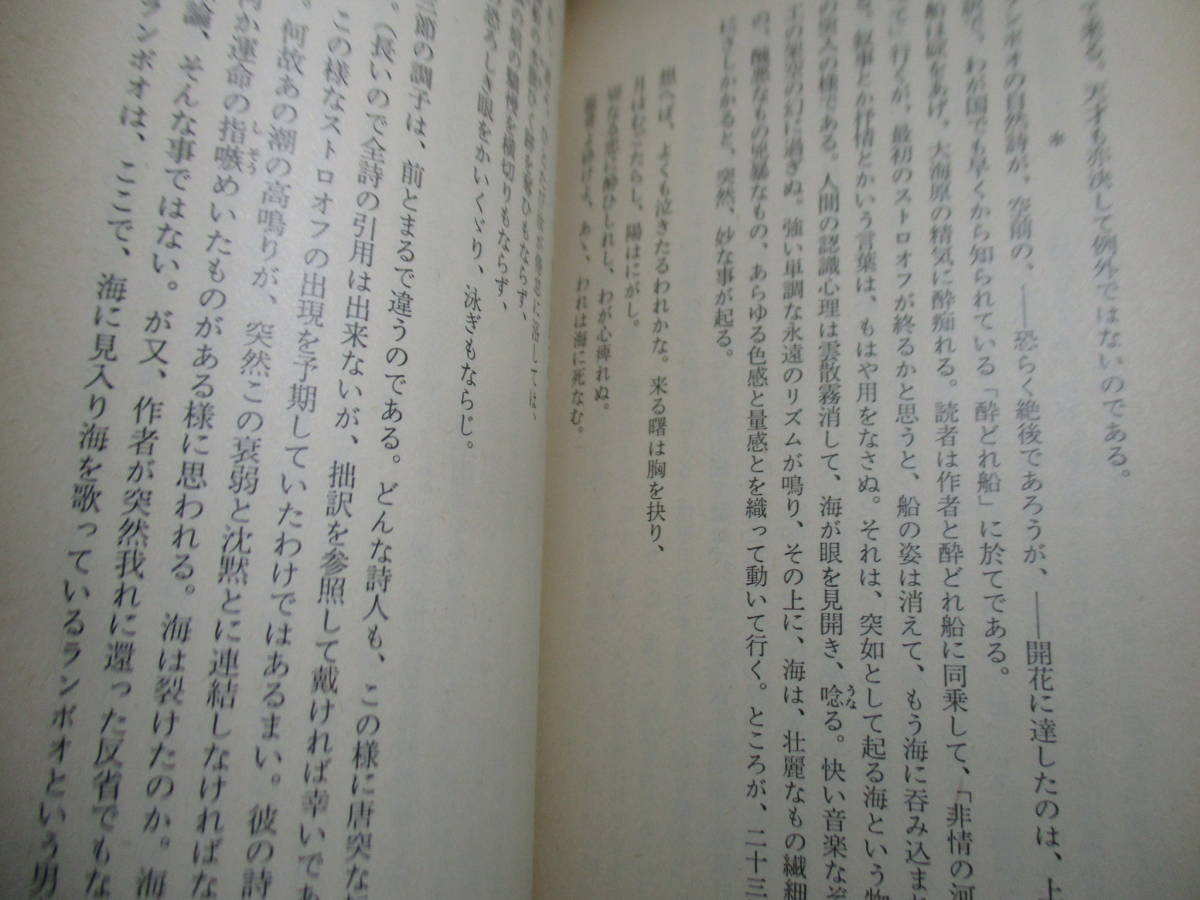 て来る。天才も亦決して例外ではないのである。
*
ンボオの自然詩が、空前の、――恐らく絶後であろうが、――開花に達したのは、上
わが国でも早くから知られている「酔どれ船」に於てである。
船は碇をあげ、大海原の精気に酔痴れる。読者は作者と酔どれ船に同乗して、「非情の河
て」行くが、最初のストロオフが終るかと思うと、船の姿は消えて、もう海に呑み込まれ
叙事とか抒情とかいう言葉は、もはや用をなさぬ。それは、突如として起る海という物
の様である。人間の認識心理は雲散霧消して、海が眼を見開き、唸る。快い音楽な
うな
の幻に過ぎぬ。強い単調な永遠のリズムが鳴り、その上に、海は、壮麗なもの繊細
の、醜悪なもの兇暴なもの、あらゆる色感と量感とを織って動いて行く。ところが、二十三
にさしかかると、突然、妙な事が起る。
想へば、よくも泣きたるわれかな。来る曙は胸を抉り、
月はむごたらし、陽はにがし。
切なる恋に酔ひしれし、わが心痺れぬ。
砕けよ、あゝ、われは海に死なむ。
に浴しては、
ひく跡を奪ひもならず、
の旗の驕慢を横切りもならず、
恐ろしき眼をかいくゞり、泳ぎもならじ。
三節の調子は、前とまるで違うのである。どんな詩人も、この様に唐突な
。（長いので全詩の引用は出来ないが、拙訳を参照して戴ければ幸いであ
この様なストロオフの出現を予期していたわけではあるまい。彼の詩
何故あの潮の高鳴りが、突然この衰弱と沈黙とに連結しなければな
何か運命の指嗾めいたものがある様に思われる。海は裂けたのか。海
しそう
論、そんな事ではない。が又、作者が突然我れに還った反省でもな
ランボオは、ここで、海に見入り海を歌っているランボオという男